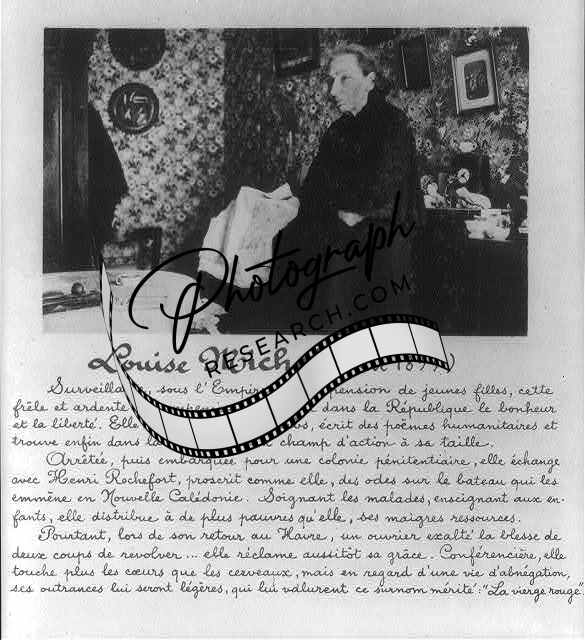 Photograph
RESEARCH.COM
Louise Mich
sous l'Empir pension de jeunes filles, cette
frêle et ardente dans la République le bonheur
et la liberté. Elle écrit des poëmes humanitaires et
trouve enfin dans champ d'action à sa taille.
Arrêtée, puis embarquée pour une colonie pénitentiaire, elle échange
avec Henri Rochefort, proscrit comme elle, des odes sur le bateau qui les
emmène en Nouvelle Calédonie. Soignant les malades, enseignant aux en-
fants, elle distribue à de plus pauvres qu'elle, ses maigres ressources.
Pourtant, lors de son retour au Havre, un ouvrier exalté la blesse de
deux coups de revolver... elle réclame aussitôt sa grâce. Conférencière, elle
touche plus les cœurs que les cerveaux, mais en regard d'une vie d'abnégation,
ses outrances lui seront légères, qui lui valurent ce surnom mérité : "La vierge rouge".